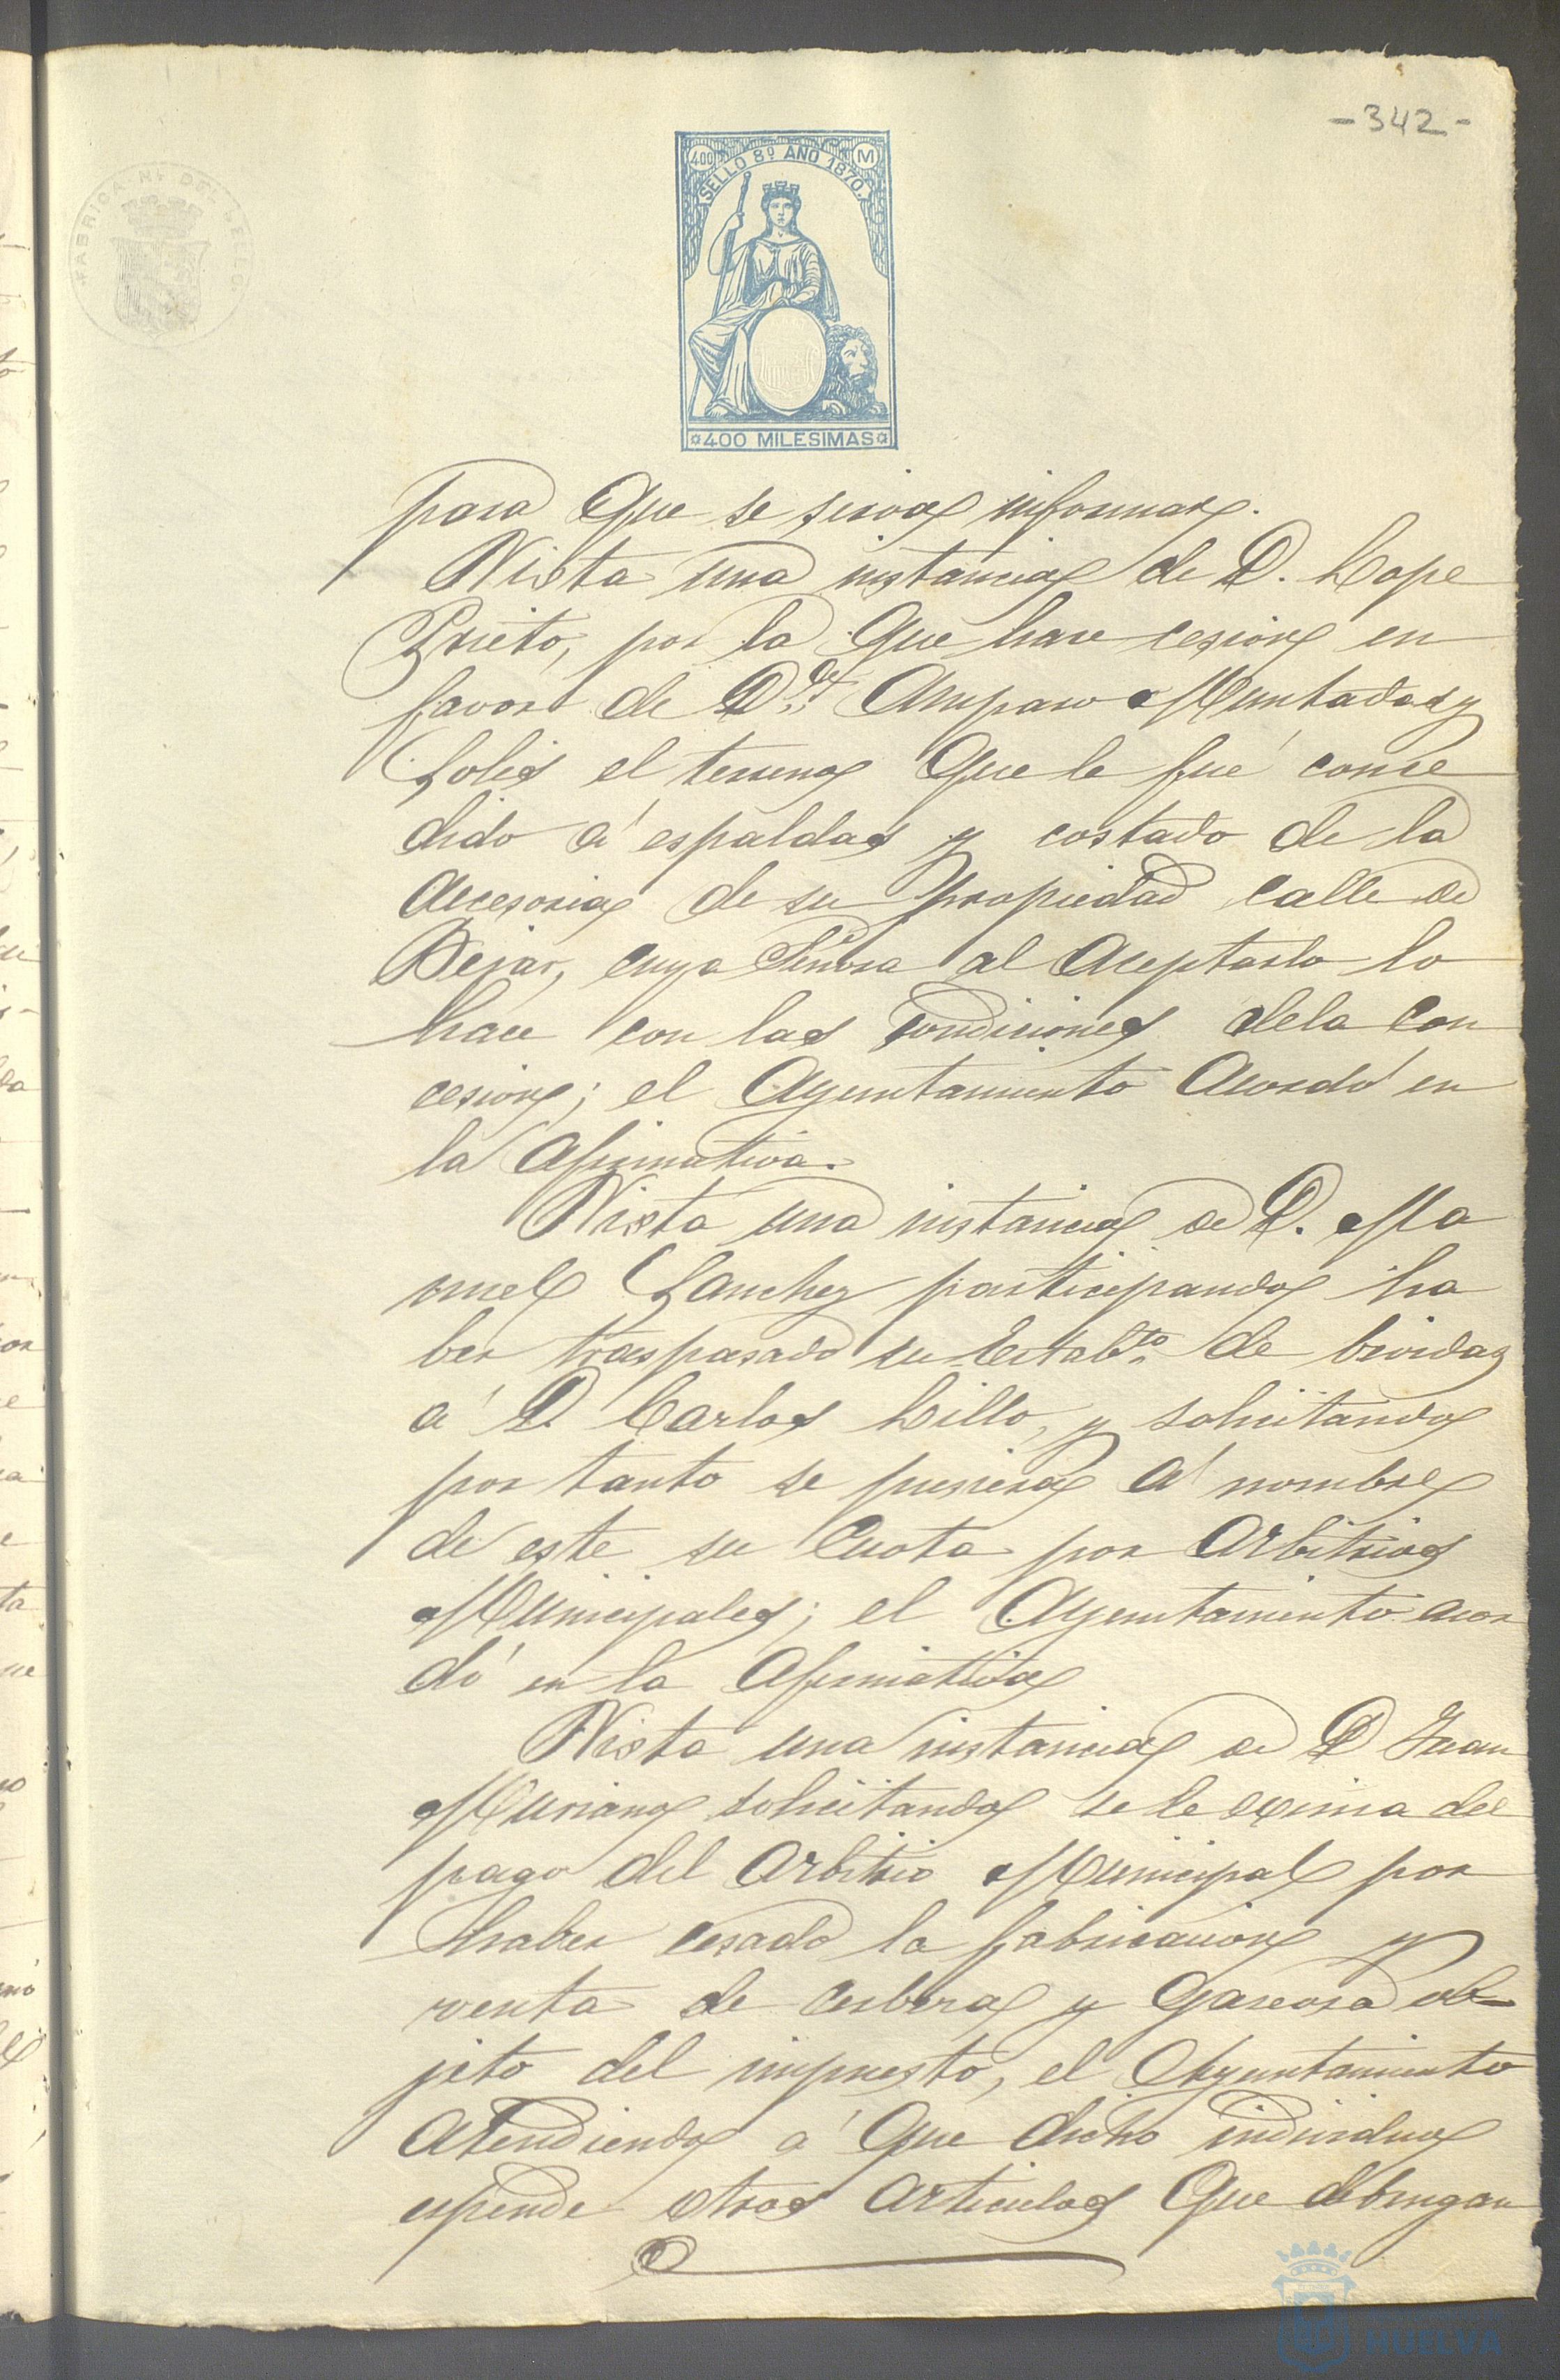 -342-
FABRICA NAL DEL SELLO
400 SELLO 8º AÑO 1870. M
400 MILESIMAS
para que se sirva informar.
Vista una instancia de D. Lope
Prieto, por la que hace cesion en
favor de D.ª Amparo Muntadas y
Solis el terreno que le fué conce
dido á espaldas y costado de la
accesoria de su propiedad calle de
Bejar, cuya Señora al aceptarlo lo
hace con las condiciones dela con
cesion; el Ayuntamiento acordó en
la afirmativa.
Vista una instancia de D. Ma
nuel Sanchez participando ha
ber traspasado su Establ.to de bevidas
á D. Carlos Lillo, y solicitando
por tanto se pusiera á nombre
de este su Cuota por arbitrios
Municipales; el Ayuntamiento acor
dó en la afirmativa
Vista una instancia de D Juan
Muriano solicitando se le exima del
pago del arbitrio Municipal por
haber cesado la fabricacion y
venta de cerbeza y gaseosa ob-
jeto del impuesto, el Ayuntamiento
atendiendo á que dicho individuo
espende otros articulos que debengan
HUELVA